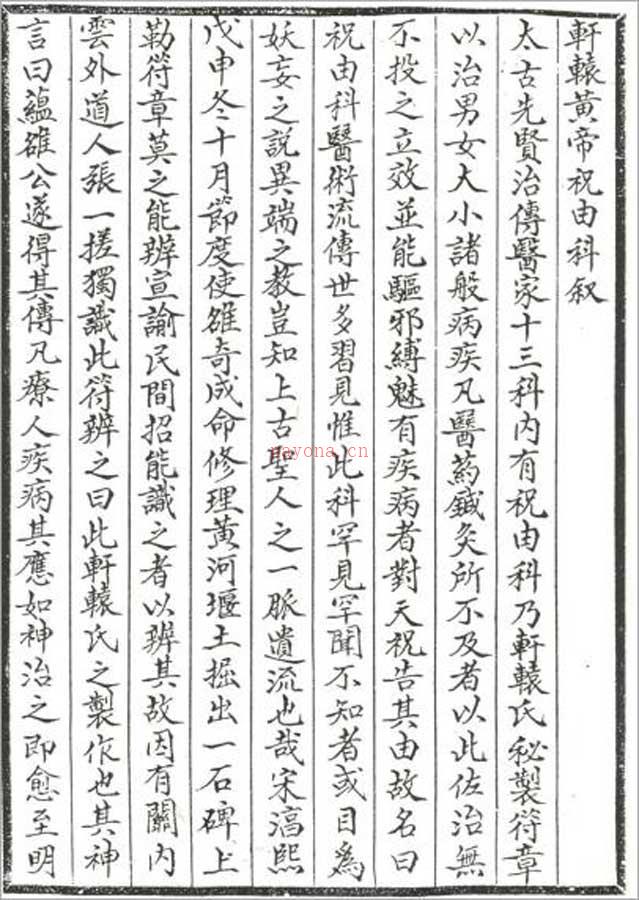 軒轅黃帝祝由科叙
太古先賢治傳醫家十三科内有祝由科乃軒轅氏秘製符章
以治男女大小諸般病疾凡醫藥鍼灸所不及者以此佐治無
不投之立效並能驅邪縛魅有疾病者對天祝告其由故名曰
祝由科醫術流傳世多習見惟此科罕見罕聞不知者或目為
妖妄之說異端之教豈知上古聖人之一脈遺流也哉宋淳熙
戊申冬十月節度使雒奇成命修理黄河堰土掘出一石碑上
勒符章莫之能辨宣諭民間招能識之者以辨其故因有關内
雲外道人張一搓獨識此符辨之曰此軒轅氏之製作也其神
言曰蘊雒公遂得其傳凡療人疾病其應如神治之即愈至明
nayona.cn